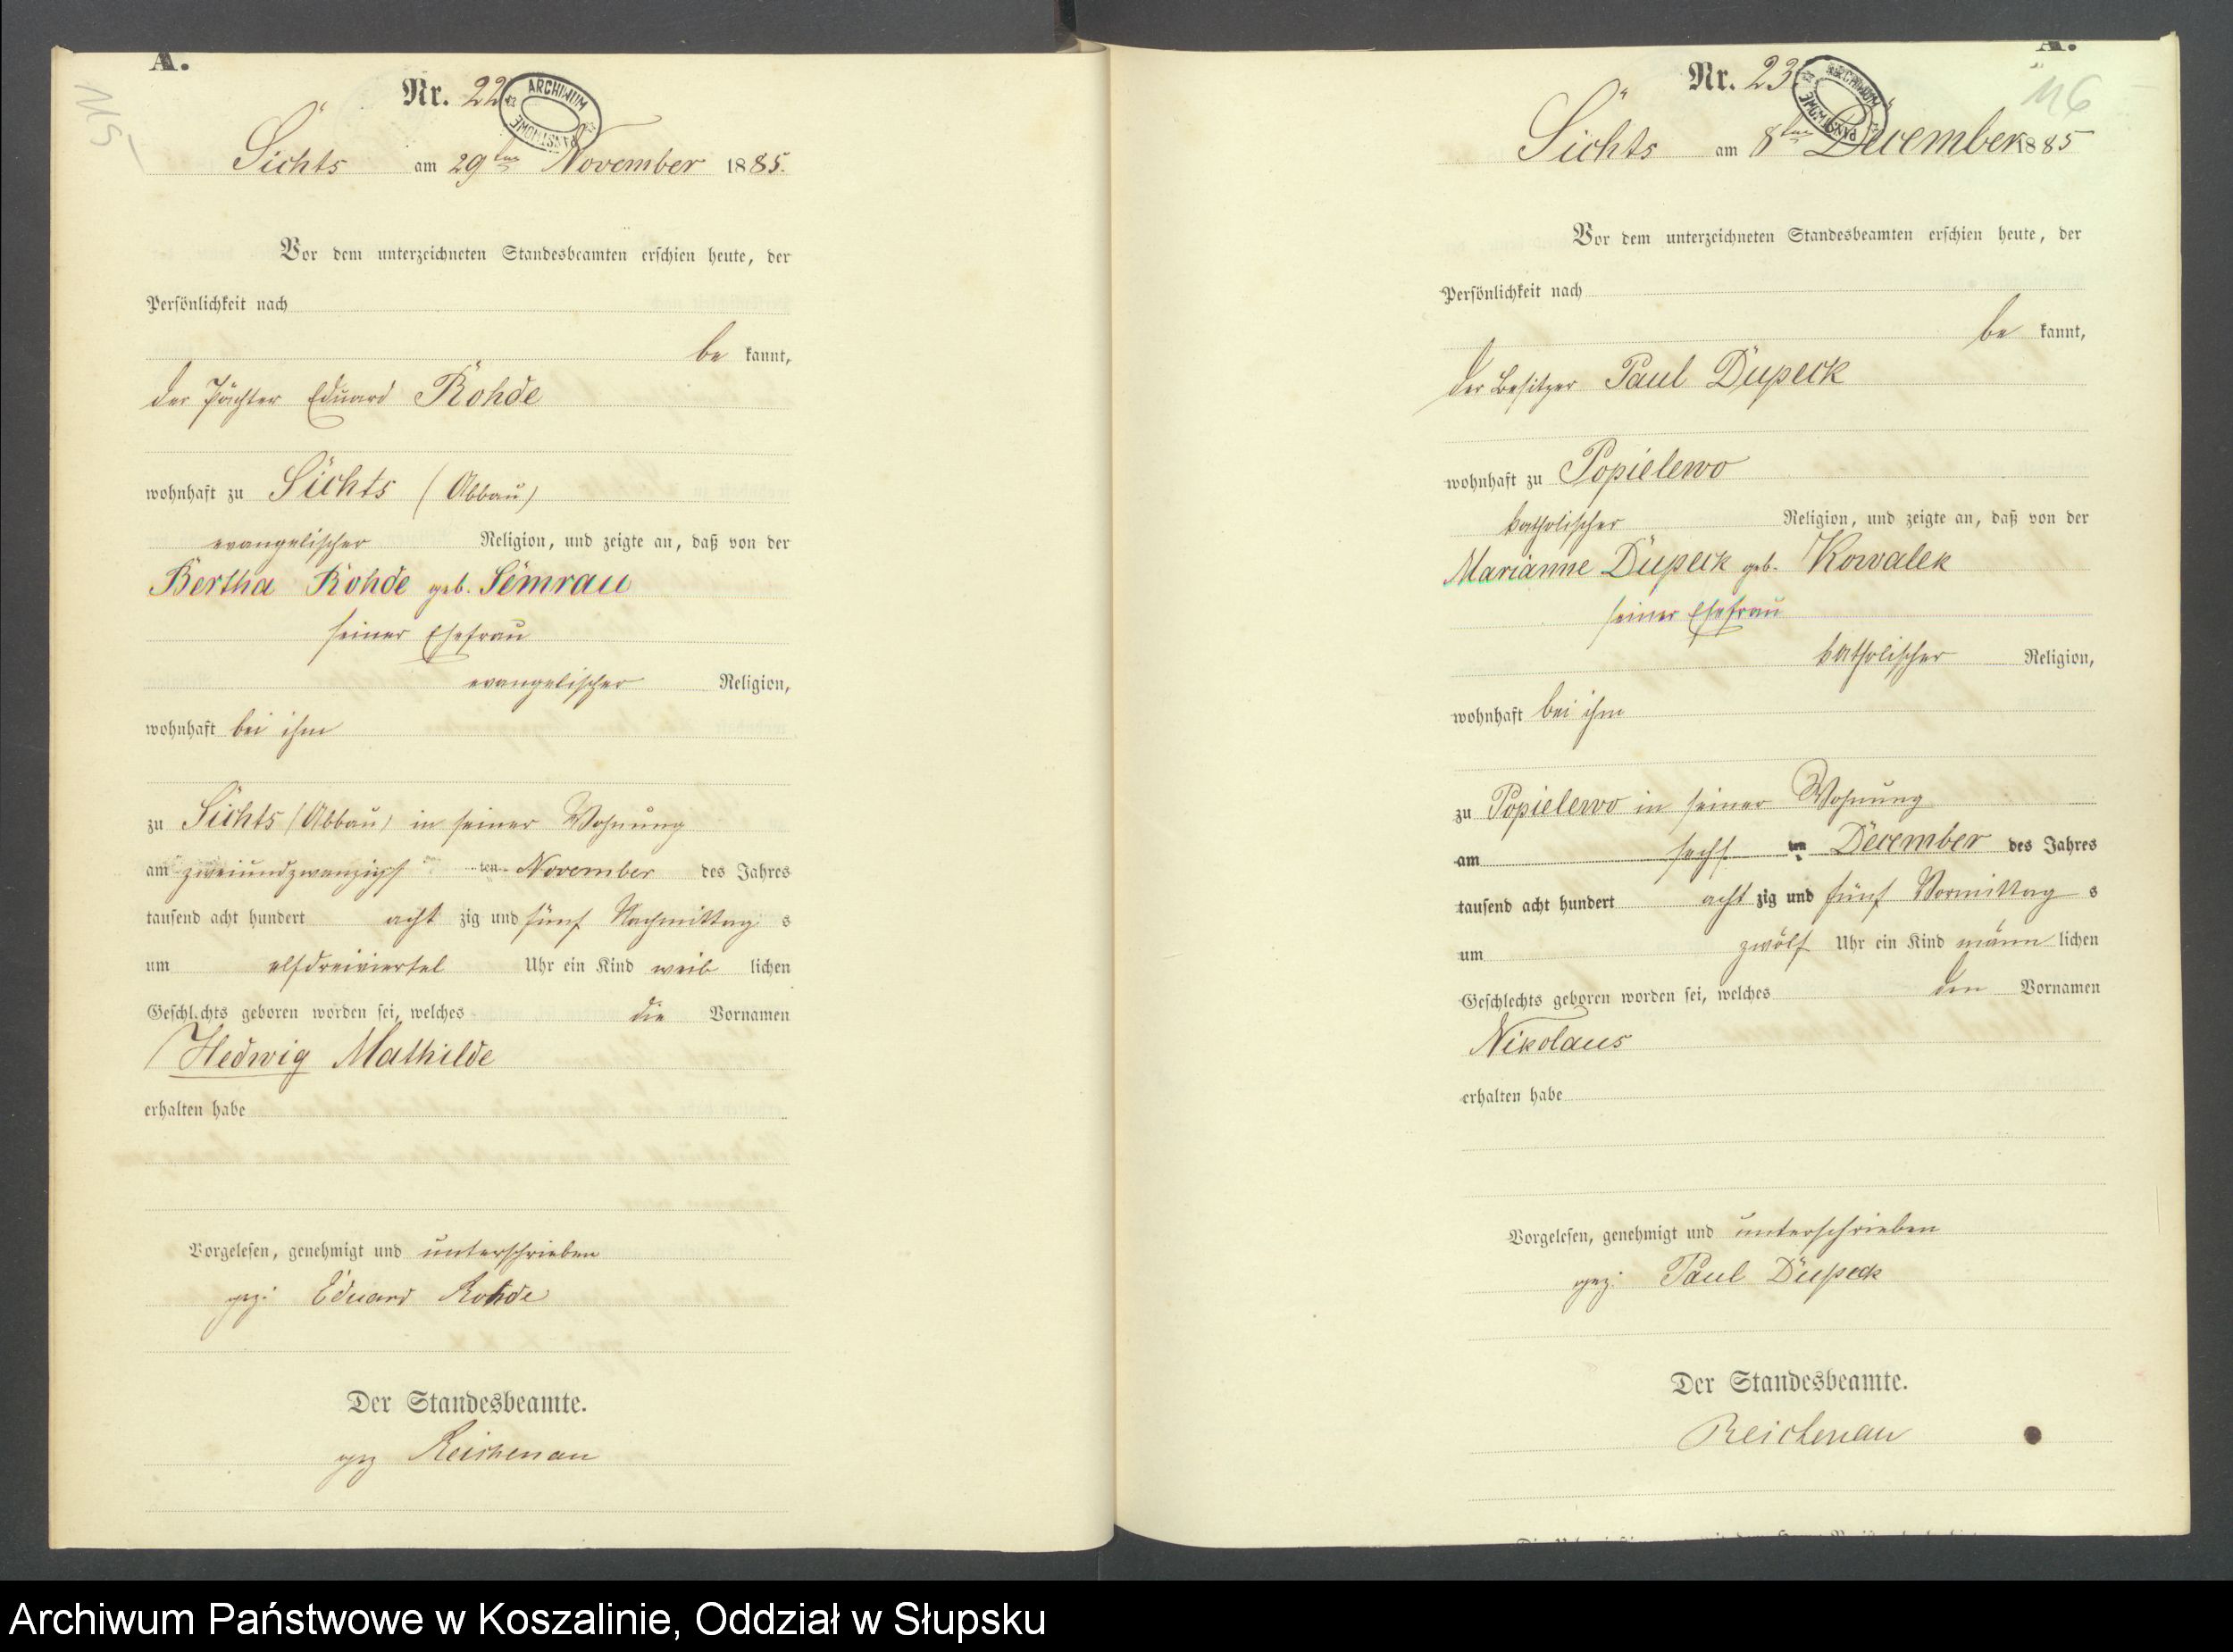 A.
115
Nr. 22
ARCHIWUM PAŃSTWOWE
Sichts am 29ten November 1885.
Vor dem unterzeichneten Standesbeamten erschien heute, der
Persönlichkeit nach
be kannt,
der Pächter Eduard Rohde
wohnhaft zu Sichts (Abbau)
evangelischer Religion, und zeigte an, daß von der
Bertha Rohde geb. Semrau
seiner Ehefrau
evangelischer Religion,
wohnhaft bei ihm
zu Sichts (Abbau) in seiner Wohnung
am zweiundzwanzigs ten November des Jahres
tausend acht hundert acht zig und fünf Nachmittag s
um elfdreiviertel Uhr ein Kind weib lichen
Geschlechts geboren worden sei, welches die Vornamen
Hedwig Mathilde
erhalten habe
Vorgelesen, genehmigt und unterschrieben
gez: Eduard Rohde
Der Standesbeamte.
gez Reichenau
A.
116
Nr. 23
ARCHIWUM PAŃSTWOWE
Sichts am 8ten December 1885
Vor dem unterzeichneten Standesbeamten erschien heute, der
Persönlichkeit nach
be kannt,
der Besitzer Paul Dupeck
wohnhaft zu Popielewo
katholischer Religion, und zeigte an, daß von der
Marianne Dupeck geb. Kowalek
seiner Ehefrau
katholischer Religion,
wohnhaft bei ihm
zu Popielewo in seiner Wohnung
am sechs ten December des Jahres
tausend acht hundert acht zig und fünf Vormittag s
um zwölf Uhr ein Kind männ lichen
Geschlechts geboren worden sei, welches den Vornamen
Nikolaus
erhalten habe
Vorgelesen, genehmigt und unterschrieben
gez: Paul Dupeck
Der Standesbeamte.
Reichenau
Archiwum Państwowe w Koszalinie, Oddział w Słupsku